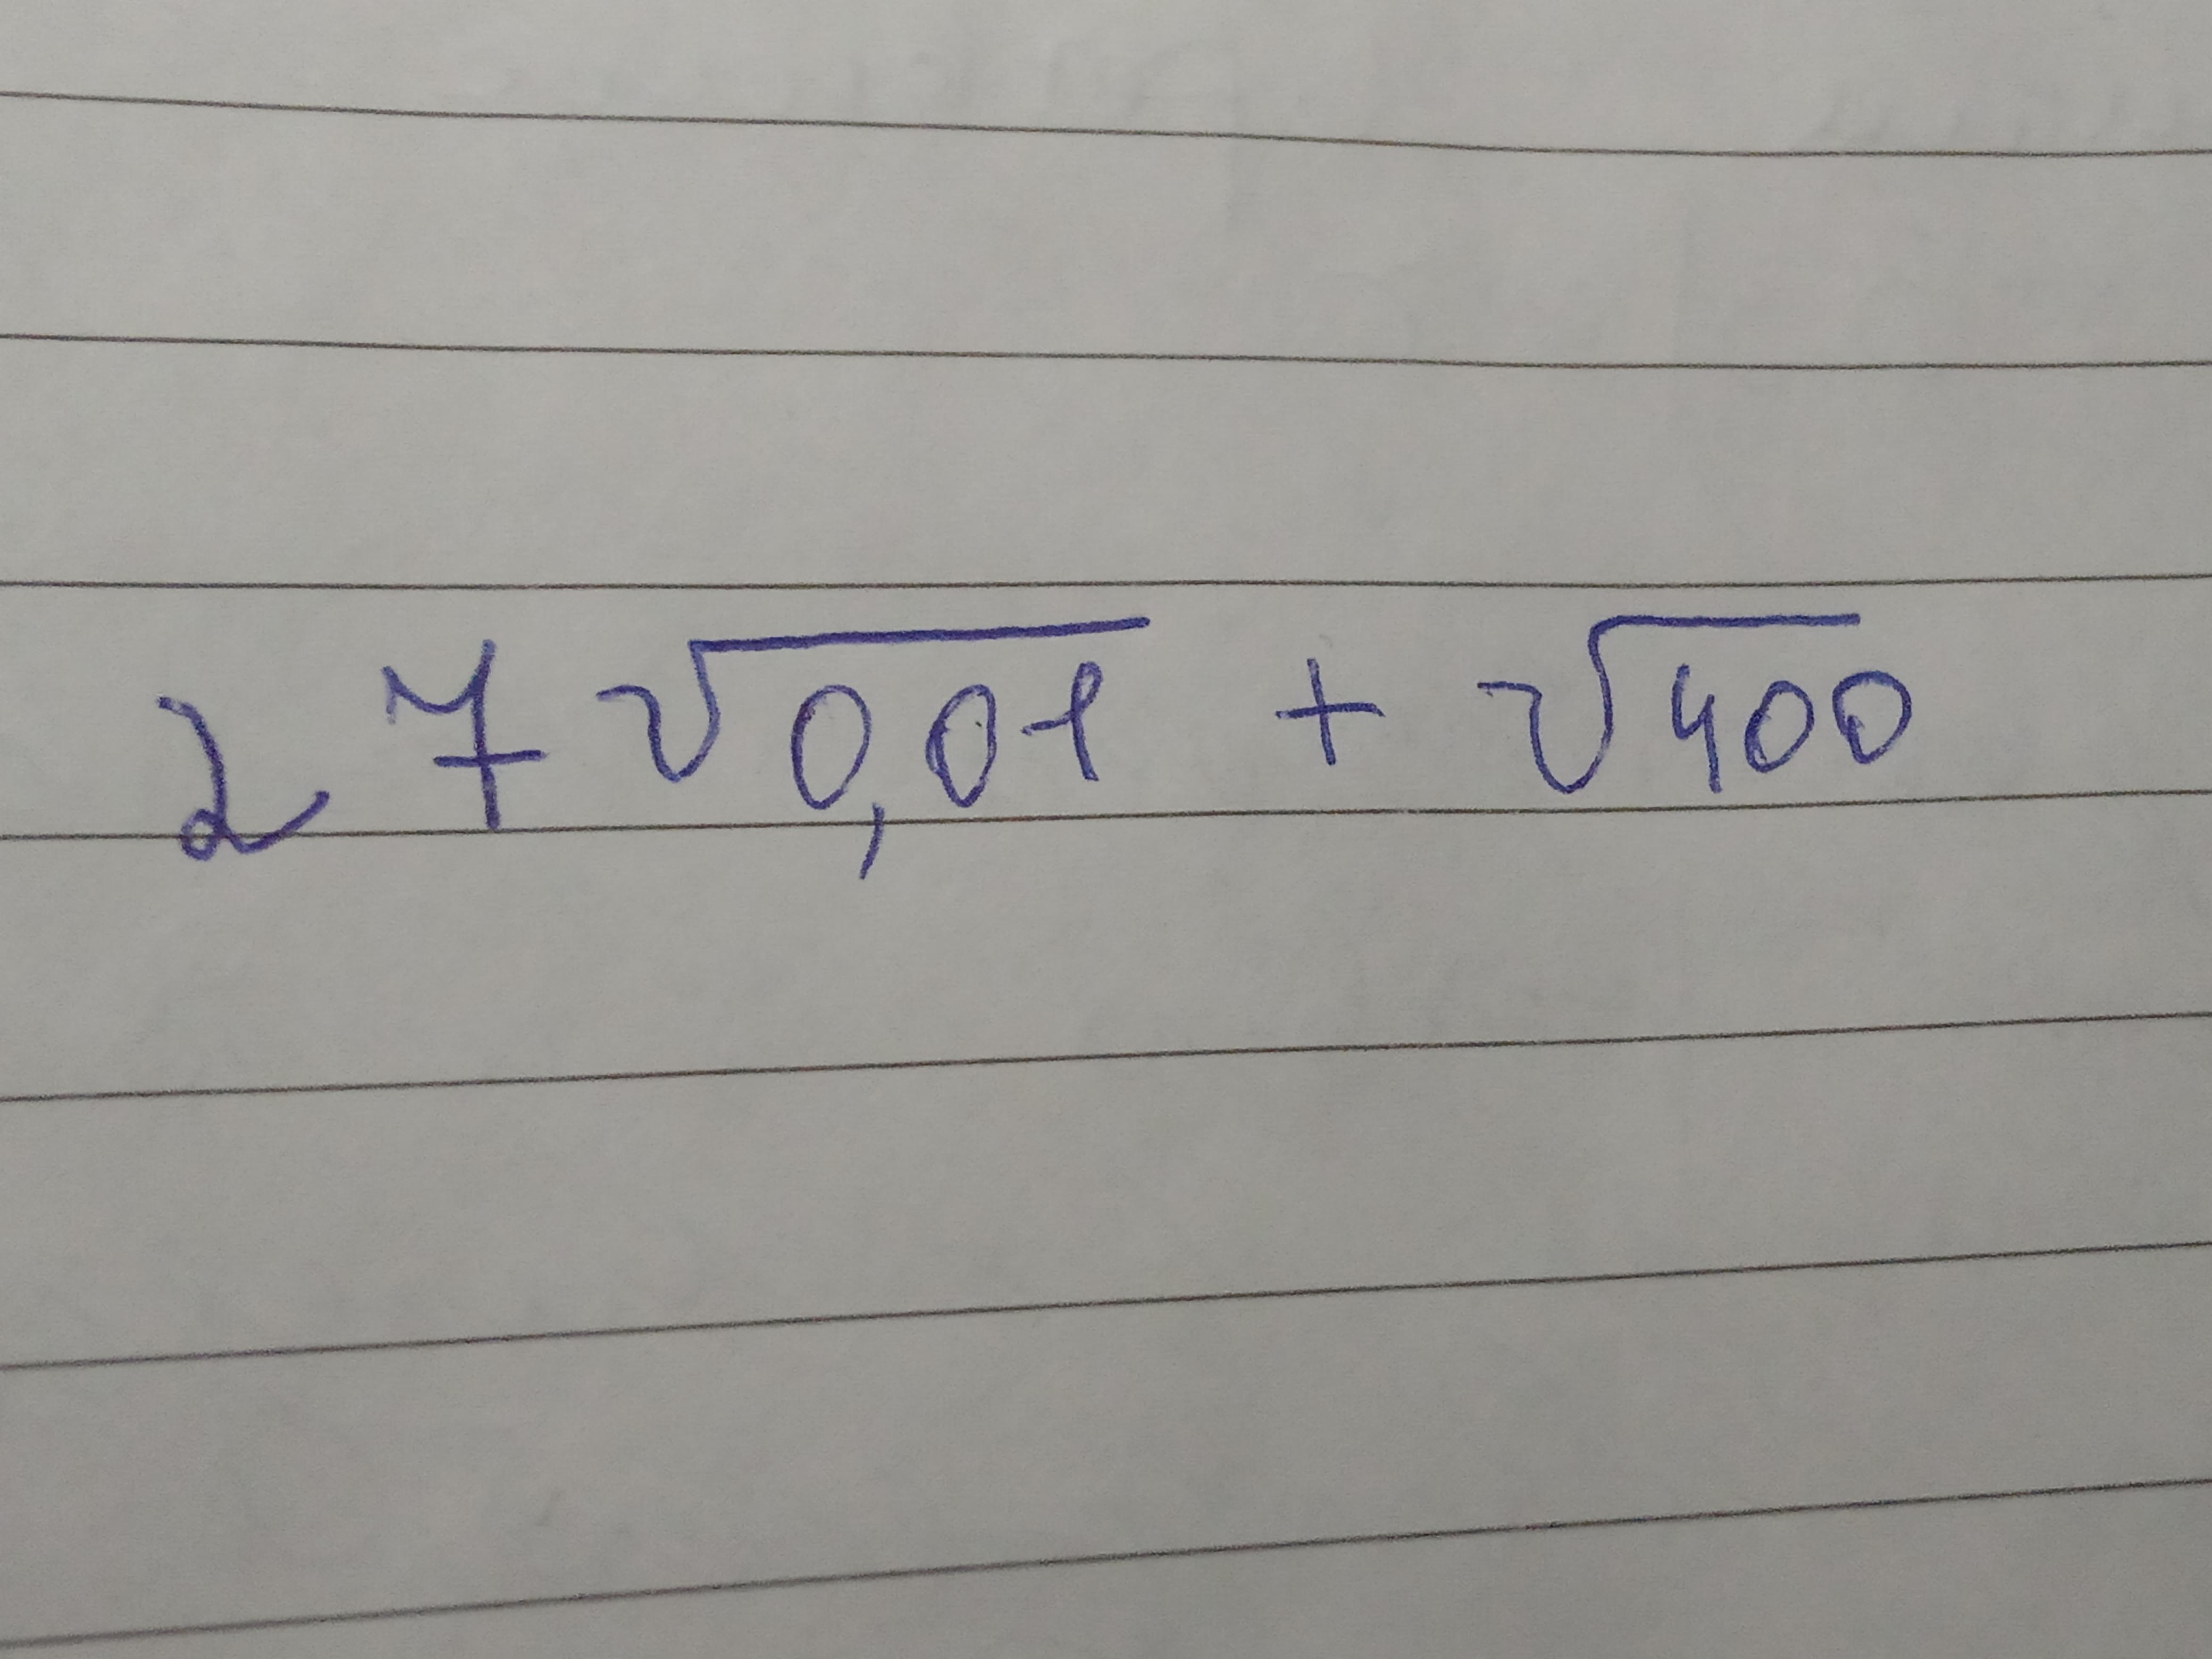 27√0,01 + √400